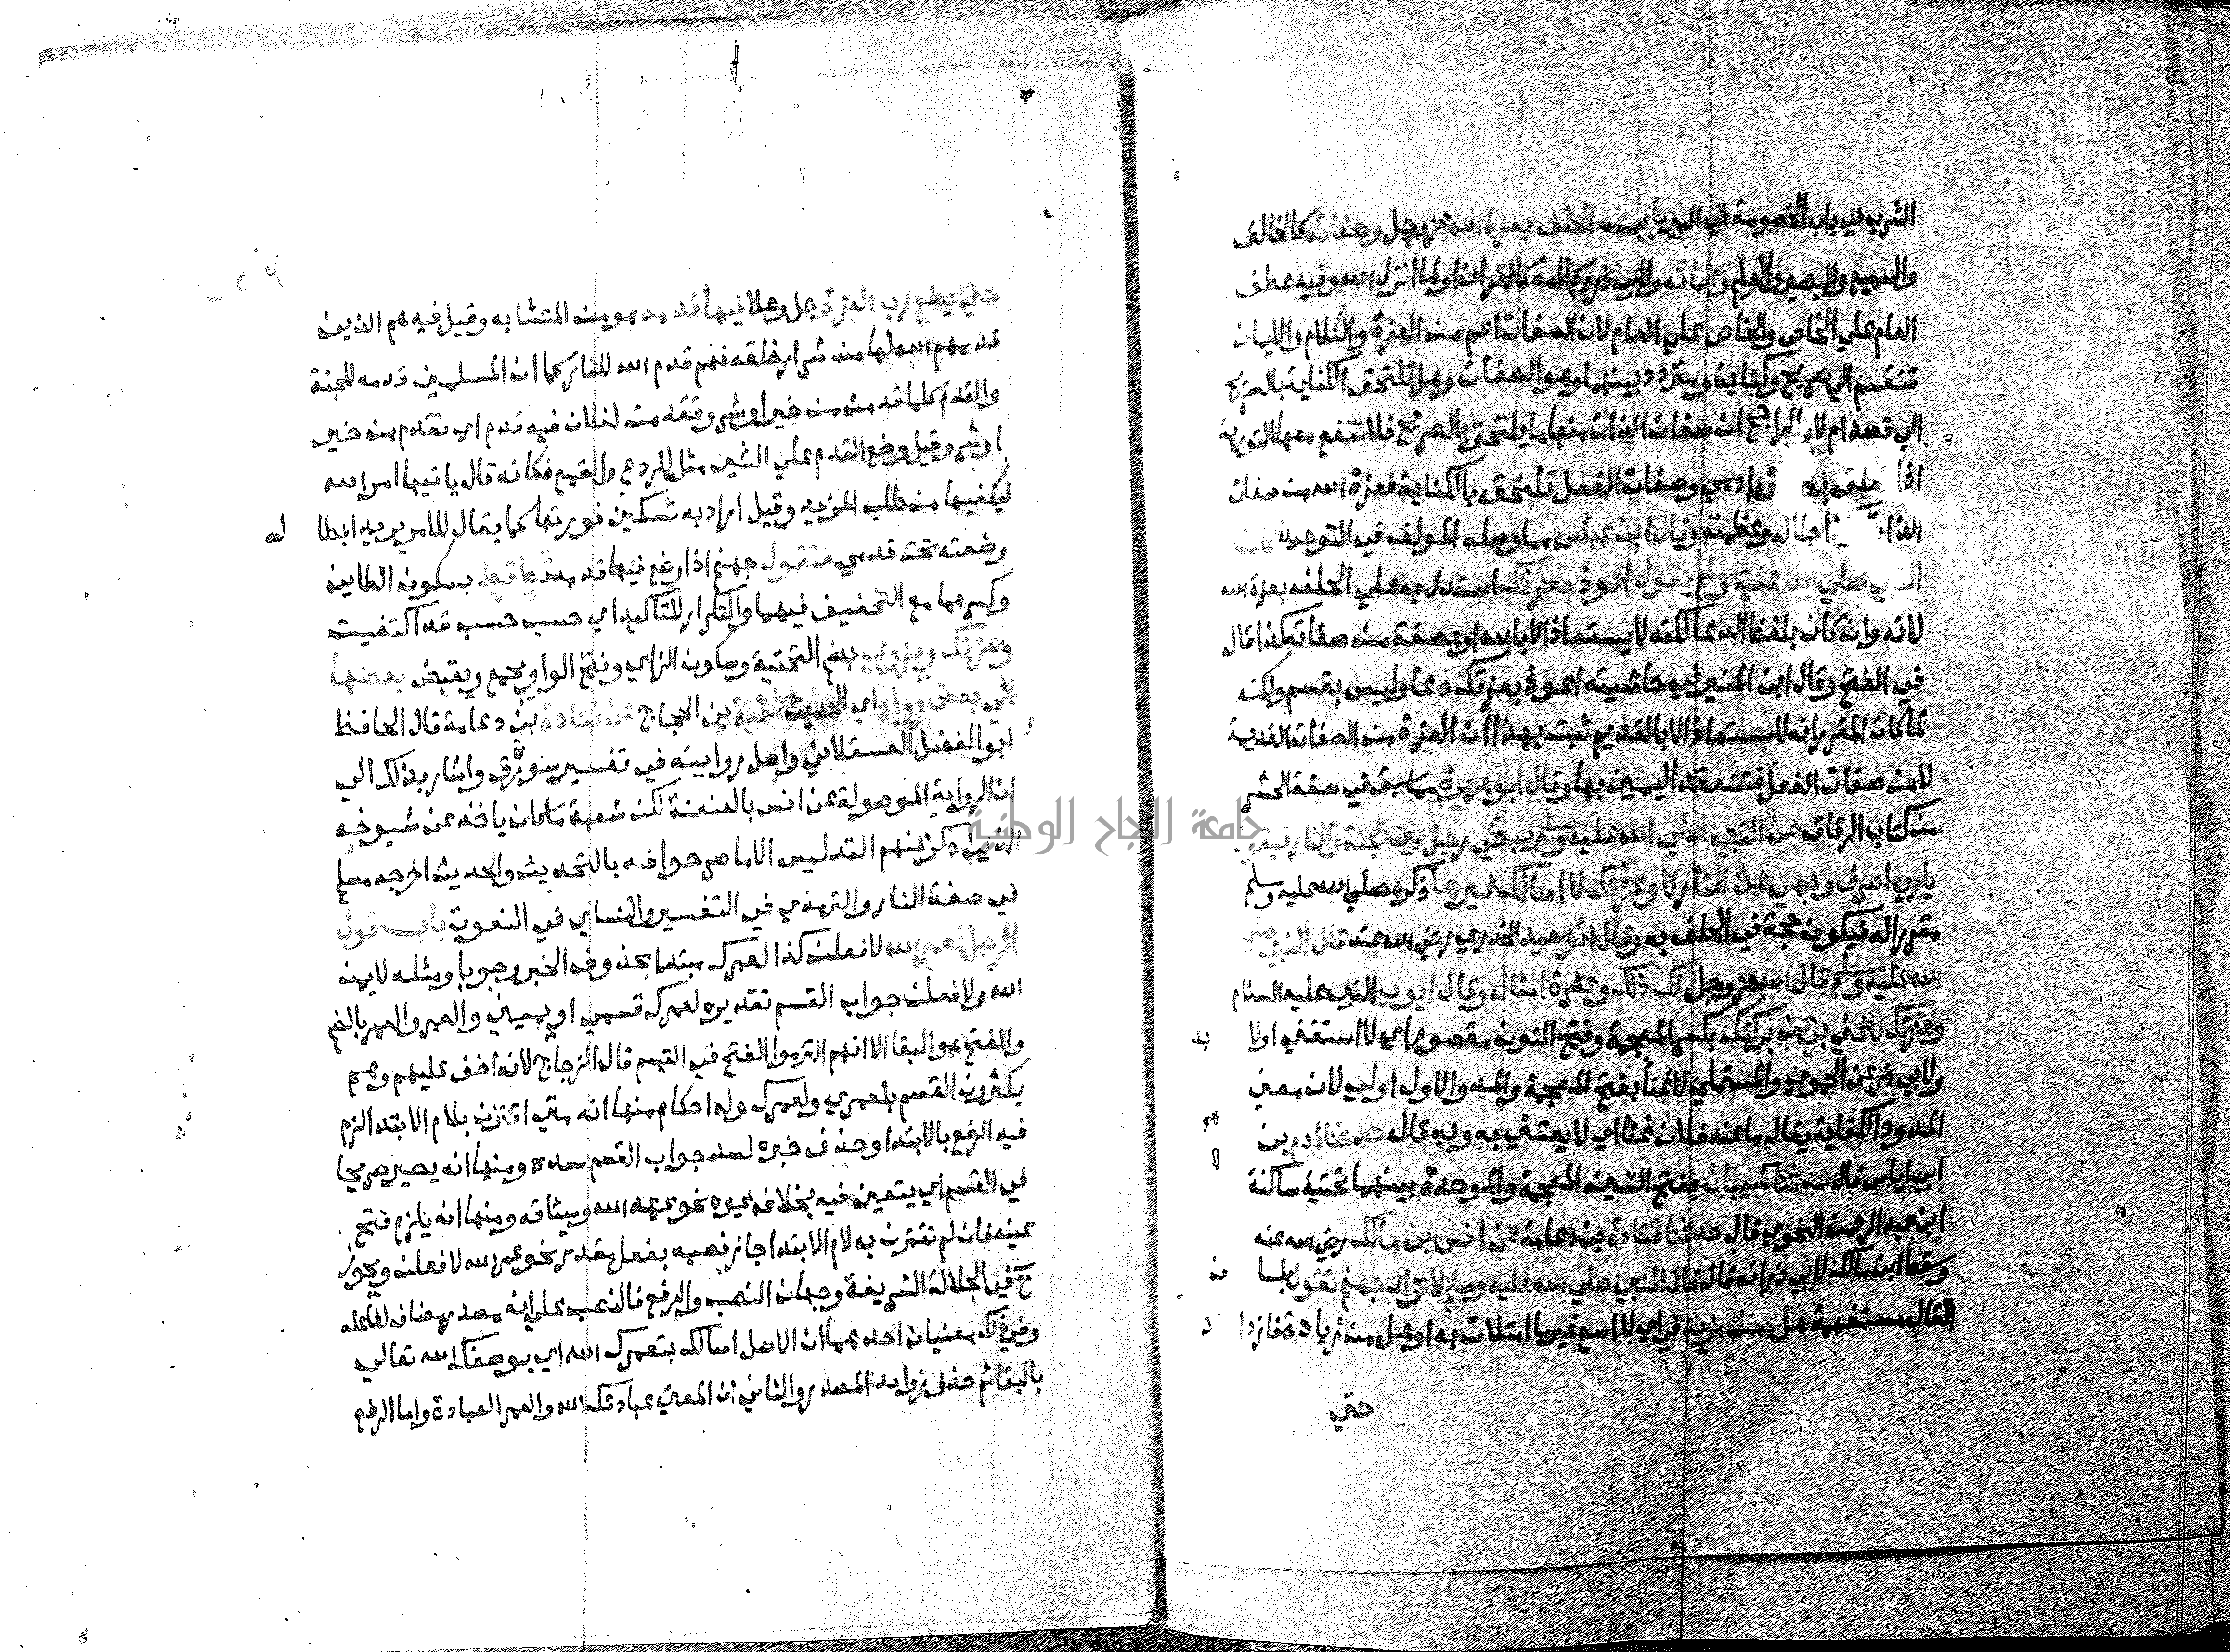 الشرب فيه باب الخصومة في البير باب الحلف بعزة الله عز وجل وصفاته كالخالق
والسميع والبصير والعليم وكلماته ولابي ذر وكلامه كالقران او بما انزل الله وفيه عطف
العام علي الخاص والخاص علي العام لان الصفات اعم من العزة والكلام والايمان
تنقسم الي صريح وكناية ومتردد بينهما وهو الصفات وهل تلتحق الكناية بالصريح
الي قصد ام لا والراجح ان صفات الذات منها ما يلتحق بالصريح فلا تنفع معها التورية
اذا تعلق به حق ادمي وصفات الفعل تلتحق بالكناية فعزة الله من صفات
الذات وكذا جلاله وعظمته وقال ابن عباس مما وصله المولف في التوحيد كان
النبي صلي الله عليه وسلم يقول اعوذ بعزتك استدل به علي الحلف بعزة الله
لانه وان كان بلفظ الدعا لكنه لا يستعاذ الا بالله او بصفة من صفاته كذا قال
في الفتح وقال ابن المنير في حاشيته اعوذ بعزتك دعا وليس بقسم ولكنه
لما كان المقرر انه لا يستعاذ الا بالقديم ثبت بهذا ان العزة من الصفات القديمة
لا من صفات الفعل فتنعقد اليمين بها وقال ابو هريرة مما سبق في صفة الحشر
من كتاب الرقاق عن النبي صلي الله عليه وسلم يبقي رجل بين الجنة والنار فيقول
يا رب اصرف وجهي عن النار لا وعزتك لا اسالك غيرها ذكره صلي الله عليه وسلم
مقررا له فيكون حجة في الحلف به وقال ابو سعيد الخدري رضي الله عنه قال النبي صلي
الله عليه وسلم قال الله عز وجل لك ذلك وعشرة امثاله وقال ايوب النبي عليه السلام
وعزتك لا غني بي عن بركتك بكسر المعجمة وفتح النون مقصورا اي لا استغني او لا بد
ولابي ذر عن الحموي والمستملي لا غناء بفتح المعجمة والمد والاول اولي لان معني
الممدود الكفاية يقال ما عند فلان غناء اي لا يغتني به وبه قال حدثنا ادم بن
ابي اياس قال حدثنا شيبان بفتح الشين المعجمة والموحدة بينهما تحتية ساكنة
ابن عبد الرحمن النحوي قال حدثنا قتادة بن دعامة عن انس بن مالك رضي الله عنه
وسقط ابن مالك لابي ذر انه قال قال النبي صلي الله عليه وسلم لا تزال جهنم تقول بلسان
القال مستفهمة هل من مزيد في اي لا اسع غير ما امتلات به او هل من زيادة فازداد
حتي
حتي يضع رب العزة جل وعلا فيها قدمه هو من المتشابه وقيل فيه هم الذين
قدمهم الله لها من شرار خلقه فهم قدم الله للنار كما ان المسلمين قدمه للجنة
والقدم كلما قدمت من خير او شر وتقدمت لفلان فيه قدم اي تقدم من خير
او شر وقيل وضع القدم علي الشي مثل للردع والقمع فكانه قال ياتيها امر الله
فيكفيها من طلب المزيد وقيل اراد به تسكين فورتها كما يقال للامر يريد ابطاله
وضعته تحت قدمي فتقول جهنم اذا وضع فيها قدمه قط قط بسكون الطاين
وكسرهما مع التخفيف فيهما والتكرار للتاكيد اي حسب حسب قد اكتفيت
وعزتك ويزوي بضم التحتية وسكون الزاي وفتح الواو يجمع ويقبض بعضها
الي بعض رواه اي الحديث شعبة بن الحجاج عن قتادة بن دعامة قال الحافظ
ابو الفضل العسقلاني واصل روايته في تفسير سورة ق واشار بذلك الي
ان الرواية الموصولة عن انس بالعنعنة لكن شعبة ما كان ياخذ عن شيوخه
الذين ذكر عنهم التدليس الا ما صرحوا فيه بالتحديث والحديث اخرجه مسلم
في صفة النار والترمذي في التفسير والنساي في النعوت باب قول
الرجل لعمر الله لافعلن كذا لعمرك مبتدا محذوف الخبر وجوبا ومثله لايمن
الله ولافعلن جواب القسم تقديره لعمرك قسمي او يميني والعمر والعمر بالضم
والفتح هو البقا الا انهم التزموا الفتح في القسم قال الزجاج لانه اخف عليهم وهم
يكثرون القسم بلعمري ولعمرك وله احكام منها انه متي اقترن بلام الابتدا لزم
فيه الرفع بالابتدا وحذف خبره لسد جواب القسم مسده ومنها انه يصير صريحا
في القسم اي يتعين فيه بخلاف غيره نحو عهد الله وميثاقه ومنها انه يلزم فتح
عينه فان لم تقترن به لام الابتدا جاز نصبه بفعل مقدر نحو عمر الله لافعلن ويجوز
ح في الجلالة الشريفة وجهان النصب والرفع فالنصب علي انه مصدر مضاف لفاعله
وفي ذلك معنيان احدهما ان الاصل اسالك بتعمرك الله اي بوصفك الله تعالي
بالبقا ثم حذف زوايد المصدر والثاني ان المعني عبادتك الله والعمر العبادة واما الرفع
جامعة النجاح الوطنية